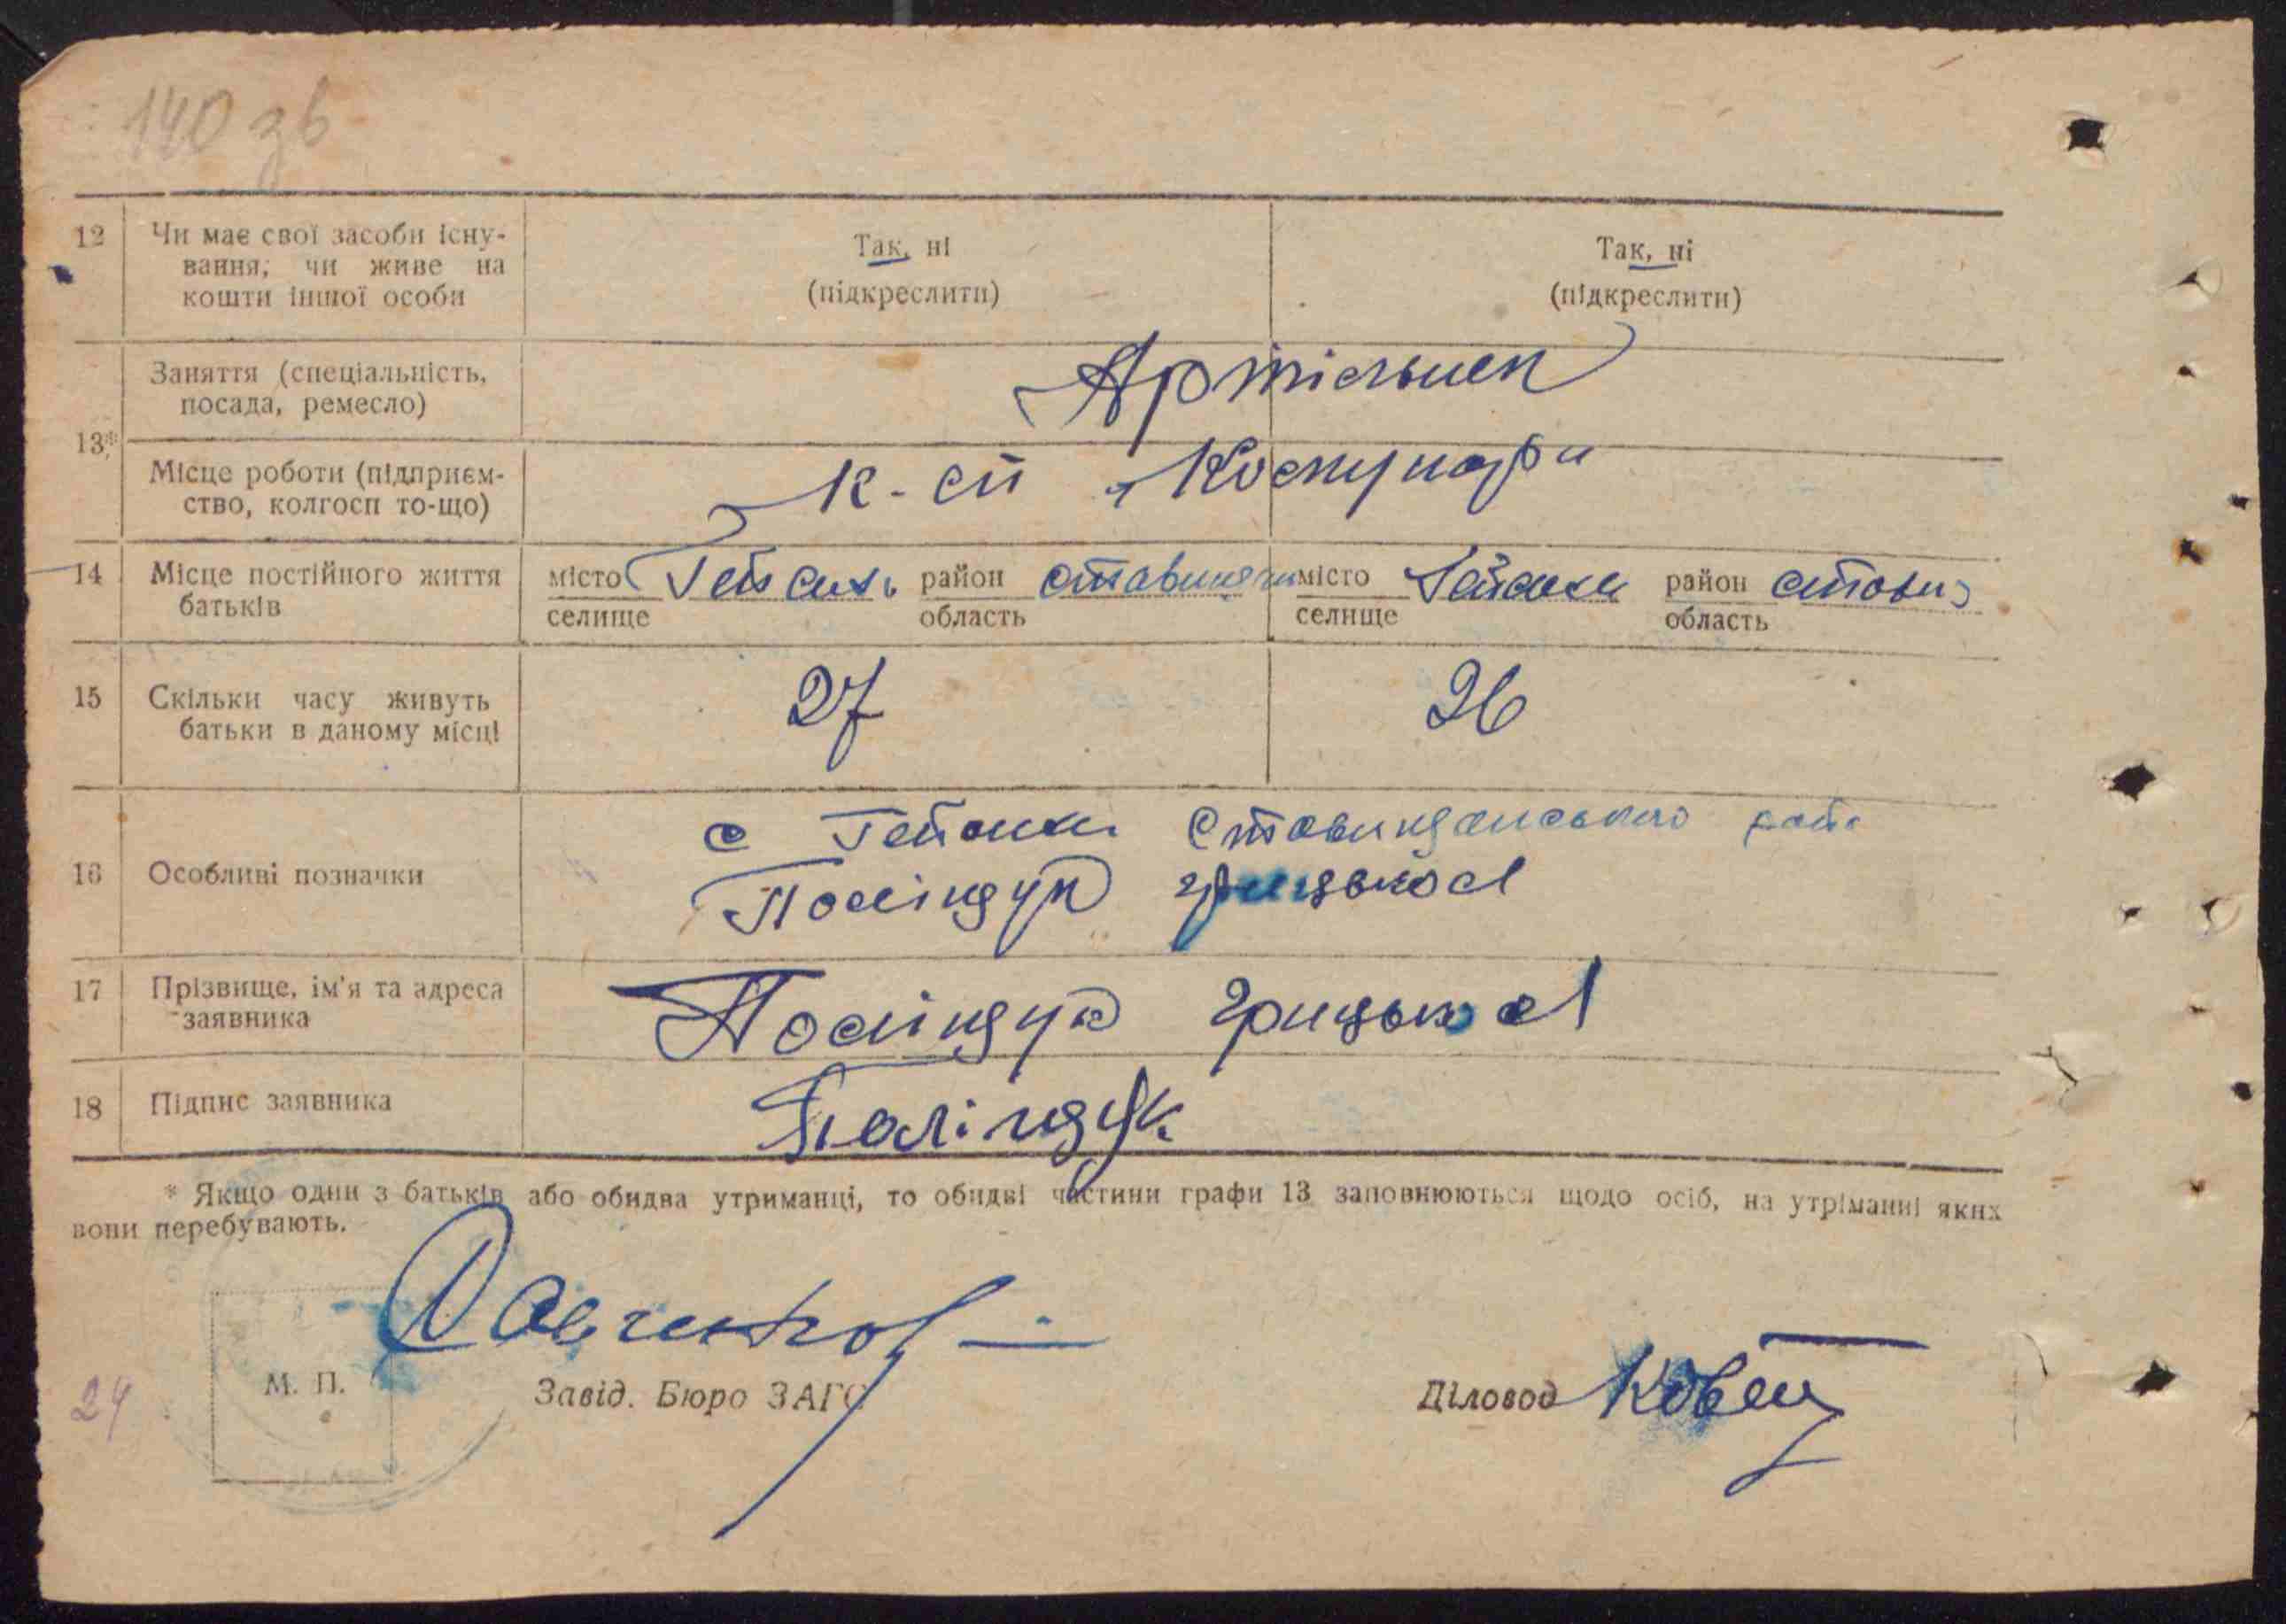 140 зв
12 Чи має свої засоби існу-
вання; чи живе на
кошти іншої особи
Так, ні
(підкреслити)
Так, ні
(підкреслити)
13*
Заняття (спеціальність,
посада, ремесло)
Артільник
Місце роботи (підприєм-
ство, колгосп то-що)
14 Місце постійного життя
батьків
місто Гейсихи район ставищан
селище область
місто Гейсихи район ставищ
селище область
15 Скільки часу живуть
батьки в даному місці
27
26
16 Особливі позначки
с Гейсихи Ставищанського рай
Поліщук Грицько Л
17 Прізвище, ім'я та адреса
заявника
Поліщук Грицько Л
18 Підпис заявника
Поліщук
* Якщо один з батьків або обидва утриманці, то обидві частини графи 13 заповнюються щодо осіб, на утріманні яких
вони перебувають.
М. П.
Завід. Бюро ЗАГС
Діловод
24